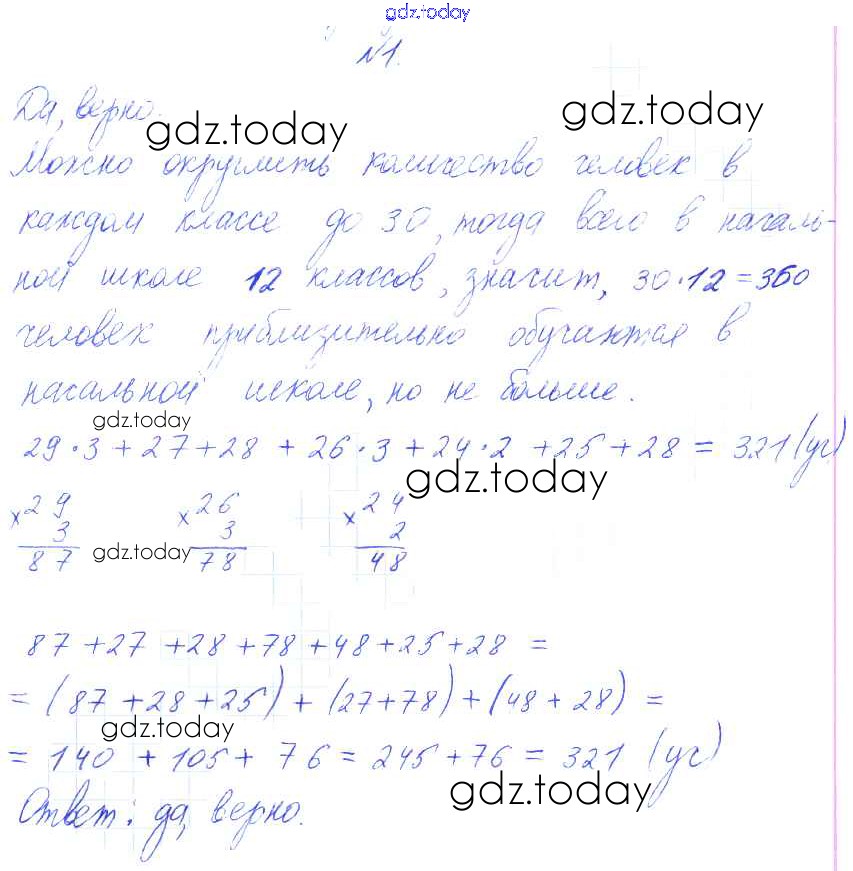 gdz.today
№1.
Да, верно.
gdz.today
gdz.today
Можно округлить количество человек в
каждом классе до 30, тогда всего в началь-
ной школе 12 классов, значит, 30·12=360
человек приблизительно обучаются в
начальной школе, но не больше.
gdz.today
29·3+27+28+26·3+24·2+25+28=321(уч)
gdz.today
×29 ×26 ×24
3 3 2
87 gdz.today 78 48
87+27+28+78+48+25+28=
=(87+28+25)+(27+78)+(48+28)=
gdz.today
=140+105+76=245+76=321 (уч)
gdz.today
Ответ: да, верно.